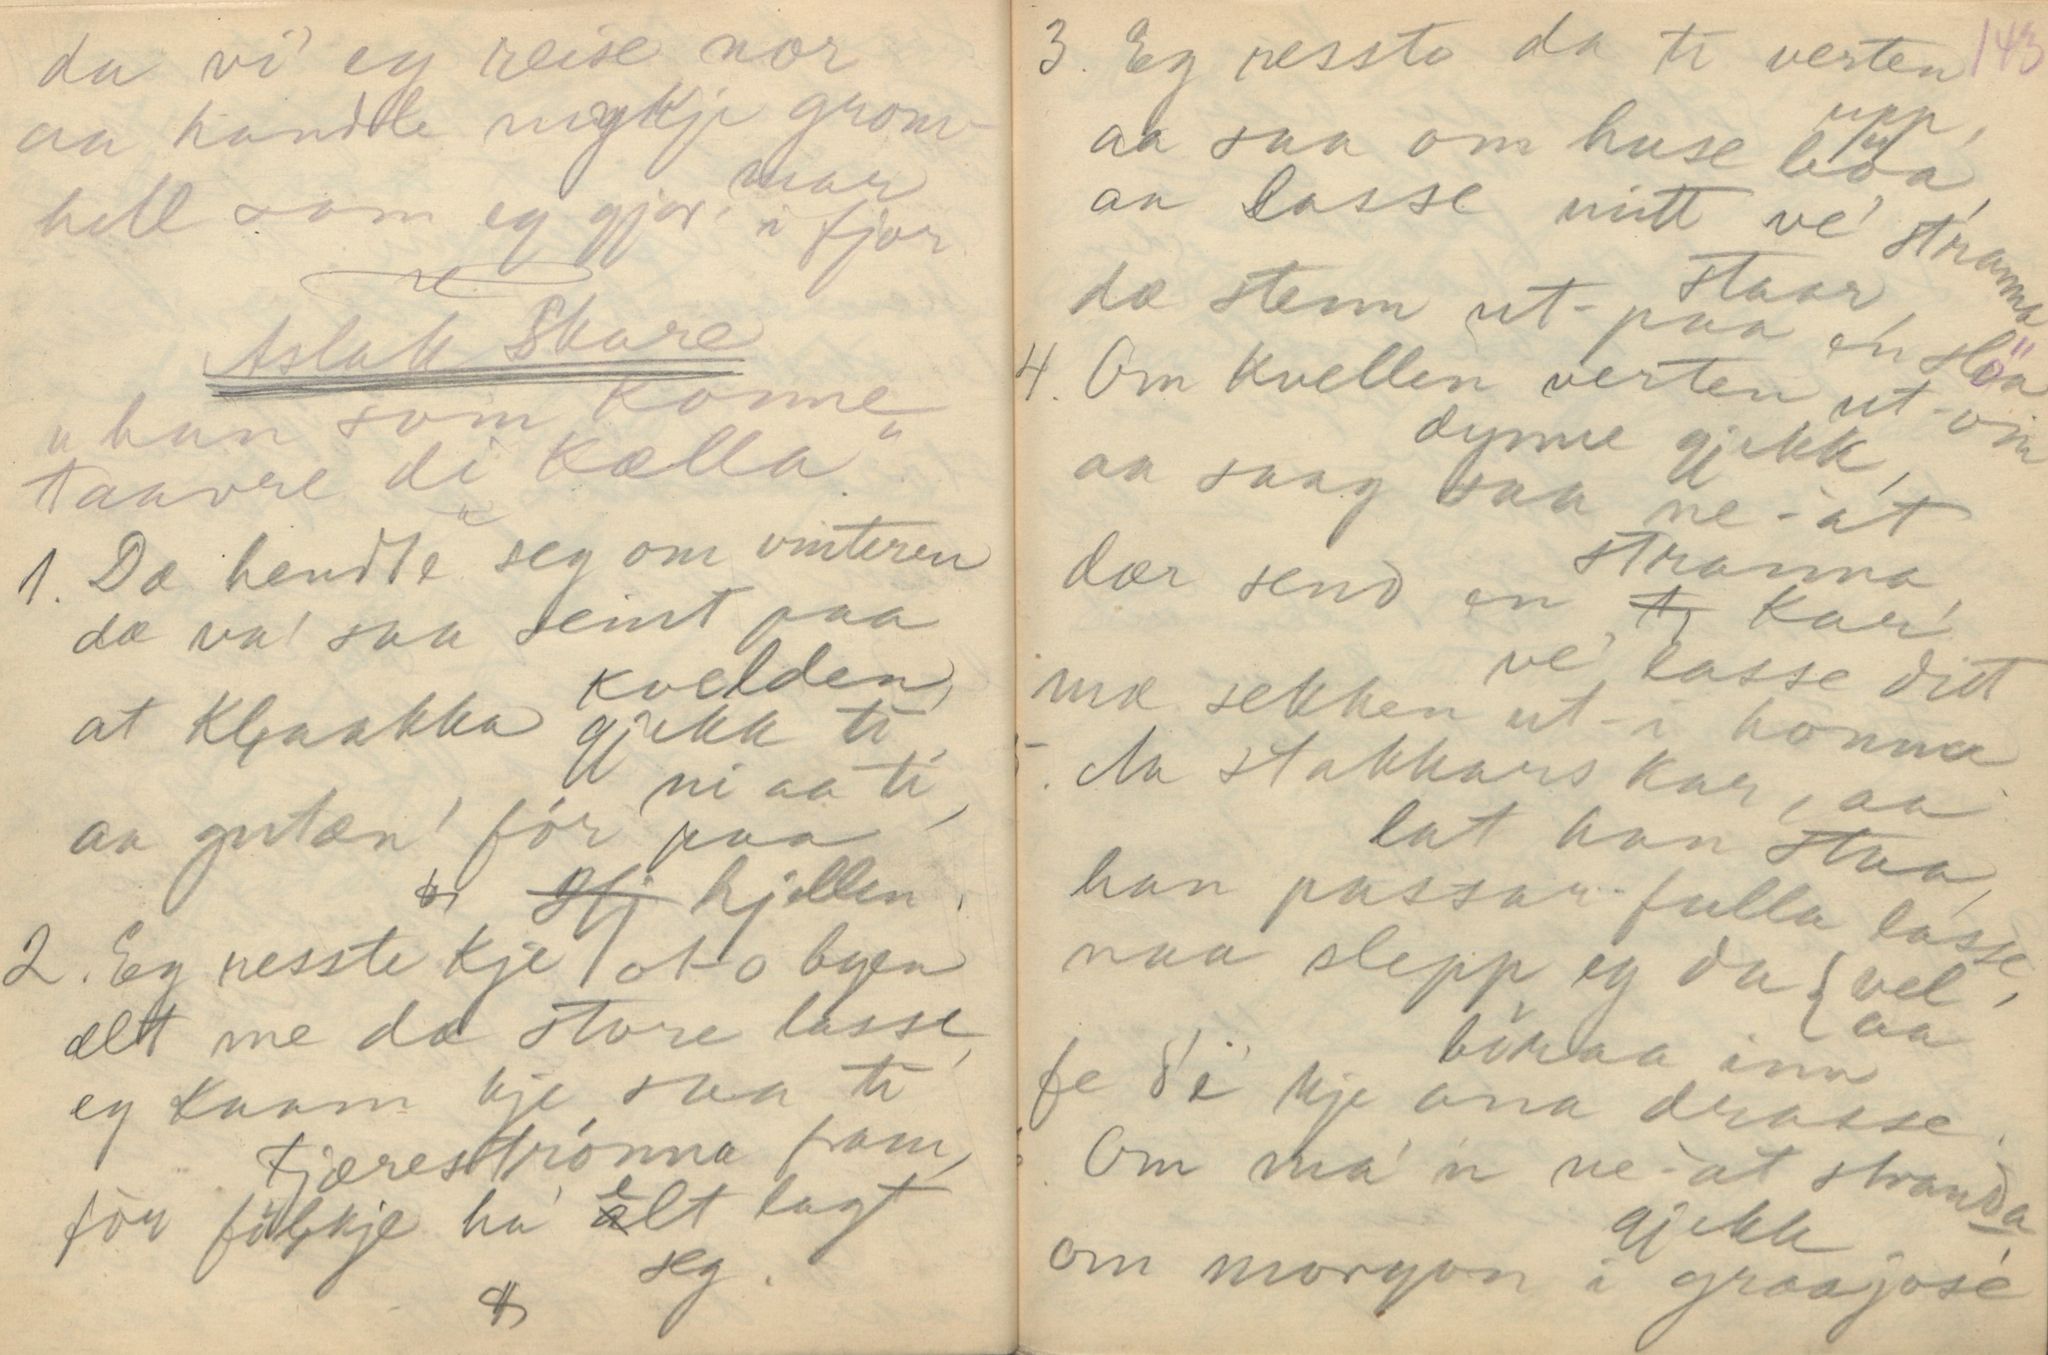 da vi' eg reise nor
aa handle mykje grom-
mar
hell som eg gjor' i fjor.
Aslak Skare
"han som konne
taavre di kælla".
1. Dæ hendte seg om vinteren
dæ va' saa seint paa
kvelden,
at Klaakka gjekk ti
ni aa ti,
aa gutæn' fór paa
hjellen.
2. Eg resste kje ot-o byen
ælt me dæ store lasse,
eg kaam kje saa ti
Fjærestrónna fram,
för fölkje ha' elt lagt
seg.
143
3. Eg resste da ti verten
upp,
aa saa om huse béa,
aa lasse mitt ve' stranna
staar,
dæ stenn ut-paa én sléa
4. Om kvellen verten ut-om
dynne gjekk,
aa saag saa ne-at
stranna,
dær send en kar'
ve' lasse ditt
mæ sekken ut-i honna
5. Aa stakkars kar, aa
lat han staa,
han passar fulla lasse,
naa slepp eg da vel
aa
böraa inn
fe d'e kje ana drasse.
Om má'n ne-at stranda
gjekk
om morgon i graajose